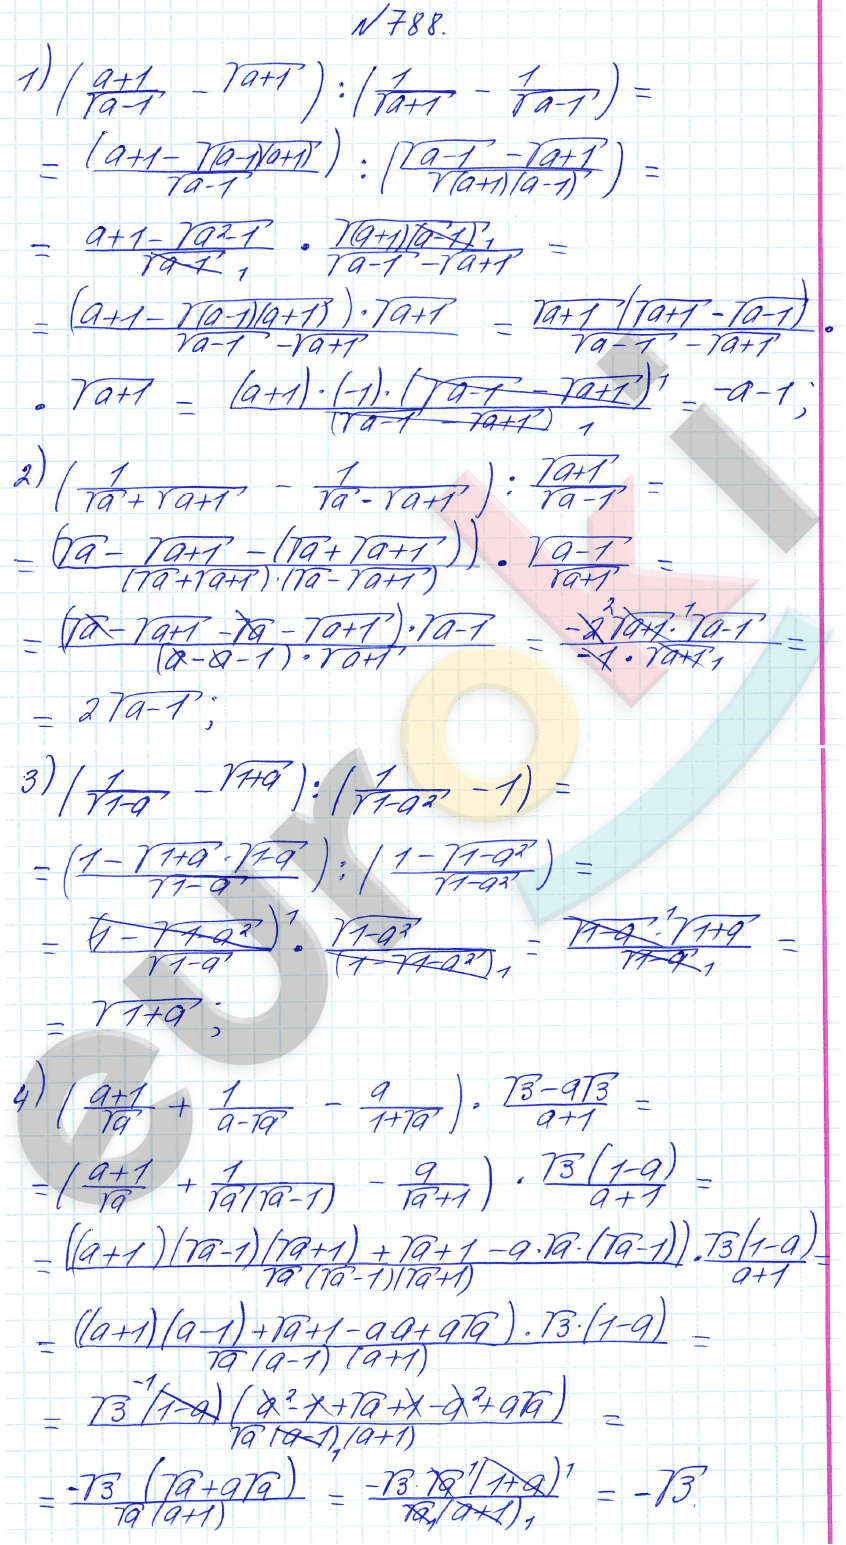 №788.
1) ( (a+1)/√(a-1) - √(a+1) ) : ( 1/√(a+1) - 1/√(a-1) ) =
= (a+1-√((a-1)(a+1)))/√(a-1) : ( (√(a-1) - √(a+1))/√((a+1)(a-1)) ) =
= (a+1-√(a²-1))/√(a-1) 1 · √((a+1)(a-1)) 1/(√(a-1) - √(a+1)) =
= ((a+1-√((a-1)(a+1)))·√(a+1))/(√(a-1) - √(a+1)) = (√(a+1) (√(a+1) - √(a-1)))/(√(a-1) - √(a+1)) ·
· √(a+1) = ((a+1)·(-1)·(√(a-1) - √(a+1)) 1)/((√(a-1) - √(a+1)) 1) = -a-1;
2) ( 1/(√a + √(a+1)) - 1/(√a - √(a+1)) ) : √(a+1)/√(a-1) =
= (√a - √(a+1) - (√a + √(a+1)))/((√a+√(a+1))·(√a-√(a+1))) · √(a-1)/√(a+1) =
= ((√a - √(a+1) - √a - √(a+1))·√(a-1))/((a-a-1)·√(a+1)) = (-2 2 √(a+1)· 1 √(a-1))/(-1·√(a+1) 1) =
= 2√(a-1);
3) ( 1/√(1-a) - √(1+a) ) : ( 1/√(1-a²) - 1 ) =
= ( (1-√(1+a)·√(1-a))/√(1-a) ) : ( (1-√(1-a²))/√(1-a²) ) =
= (1-√(1-a²)) 1/√(1-a) · √(1-a²)/((1-√(1-a²)) 1) = (√(1-a)· 1 √(1+a))/(√(1-a) 1) =
= √(1+a);
4) ( (a+1)/√a + 1/(a-√a) - a/(1+√a) ) · (√3-a√3)/(a+1) =
= ( (a+1)/√a + 1/(√a(√a-1)) - a/(√a+1) ) · (√3(1-a))/(a+1) =
= ((a+1)(√a-1)(√a+1)+√a+1-a·√a·(√a-1))/(√a(√a-1)(√a+1)) · (√3(1-a))/(a+1) =
= (((a+1)(a-1)+√a+1-a·a+a√a)·√3·(1-a))/(√a(a-1)(a+1)) =
= (√3 -1 (1-a)(a²-1+√a+1-a²+a√a))/(√a(a-1) 1 (a+1)) =
= (-√3 (√a+a√a))/(√a(a+1)) = (-√3·√a 1 (1+a) 1)/(√a 1 (a+1) 1) = -√3.
euroki